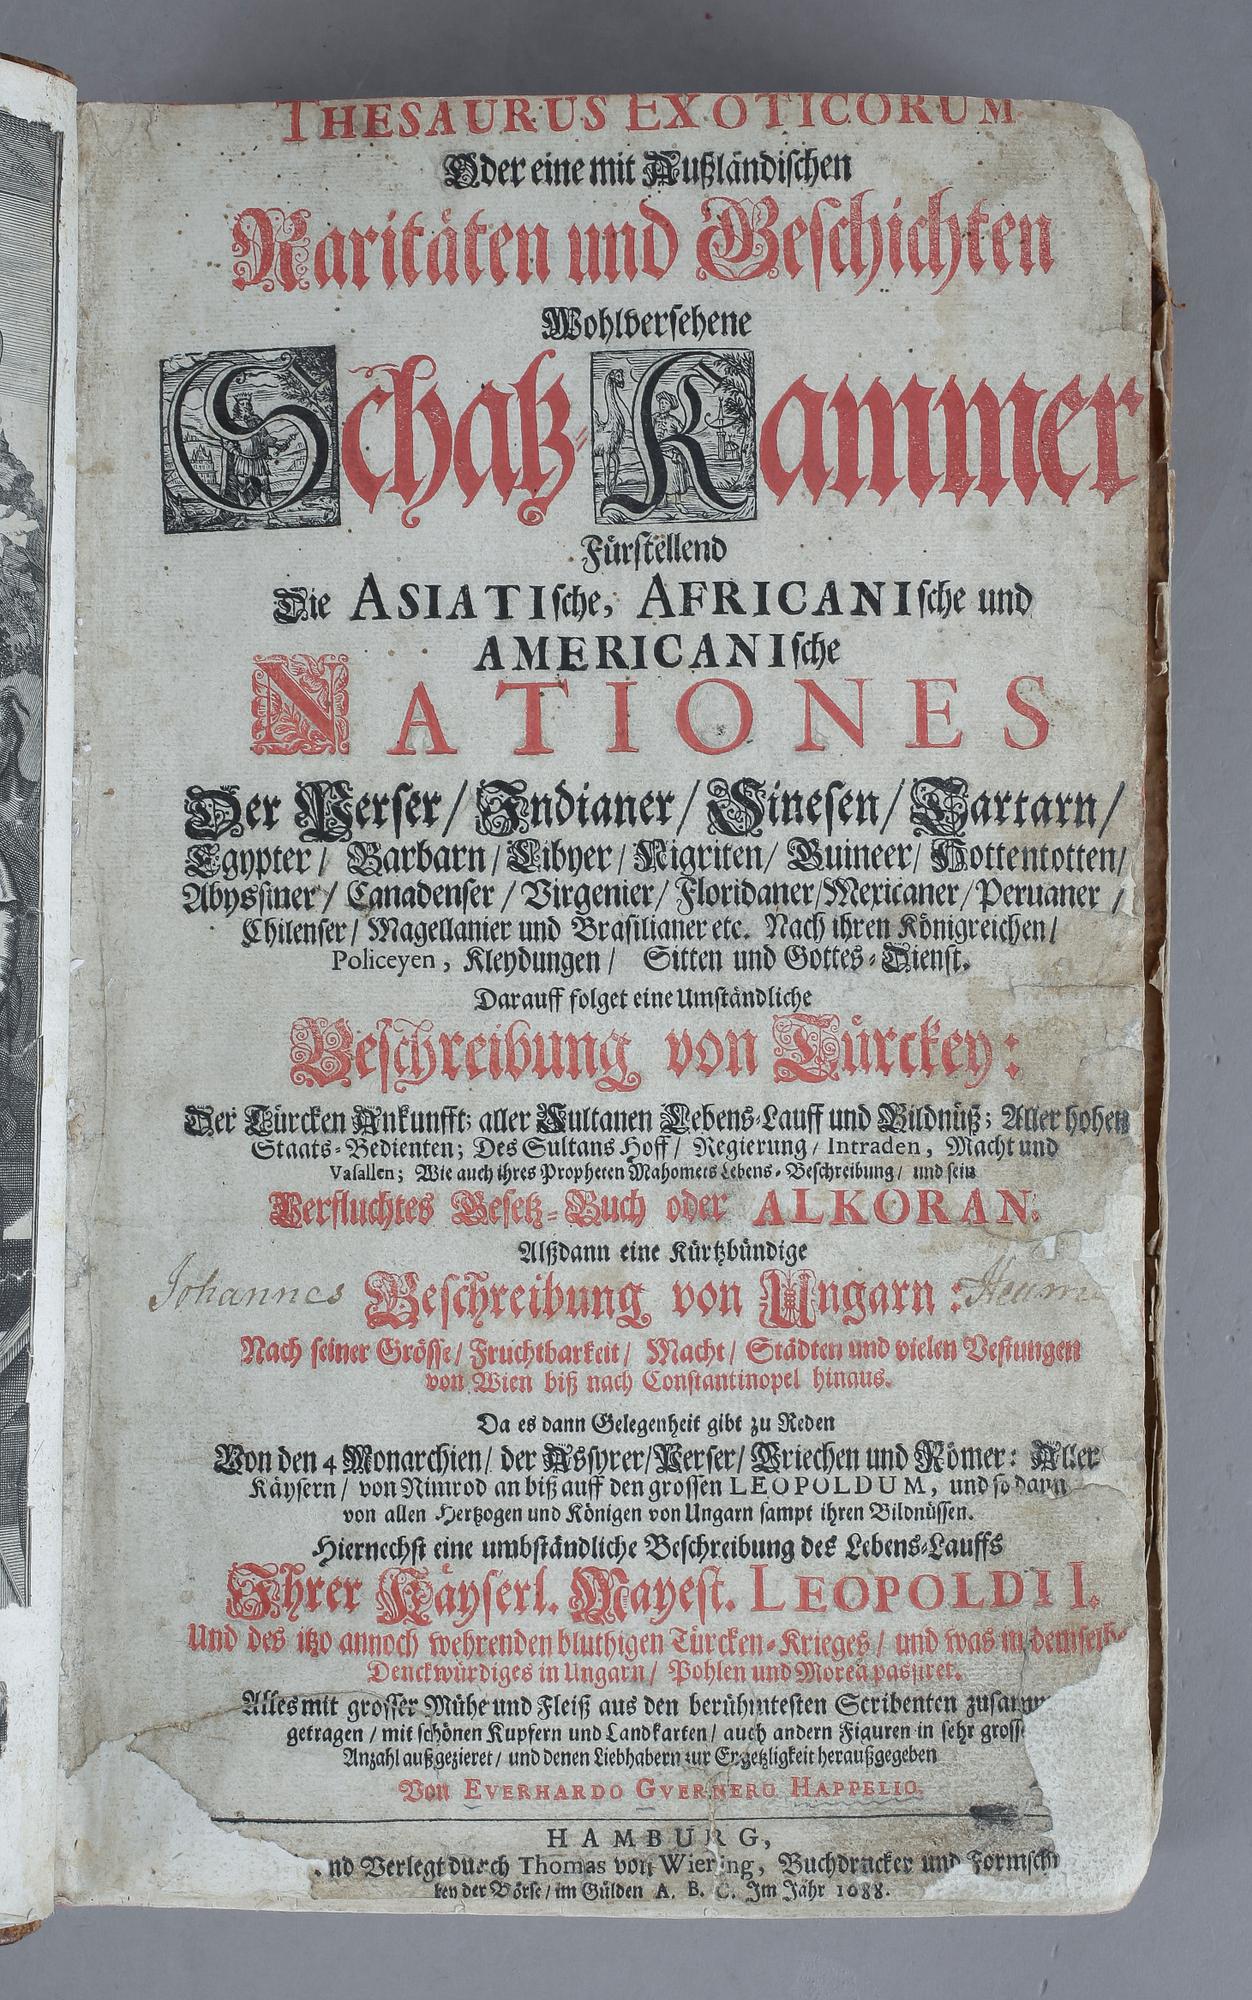 THESAURUS EXOTICORUM
Oder eine mit Außländischen
Raritäten und Geschichten
Wohlversehene
Schatz-Kammer
Fürstellend
Die ASIATIsche, AFRICANIsche und
AMERICANIsche
NATIONES
Der Perser/ Indianer/ Sinesen/ Tartarn/
Egypter/ Barbarn/ Libyer/ Nigriten/ Guineer/ Hottentotten/
Abyssiner/ Canadenser/ Virgenier/ Floridaner/ Mexicaner/ Peruaner/
Chilenser/ Magellanier und Brasilianer etc. Nach ihren Königreichen/
Policeyen, Kleydungen/ Sitten und Gottes-Dienst.
Darauff folget eine Umständliche
Beschreibung von Türckey:
Der Türcken Ankunfft; aller Sultanen Lebens-Lauff und Bildnüß; Aller hohen
Staats-Bedienten; Des Sultans Hoff/ Regierung/ Intraden, Macht und
Vasallen; Wie auch ihres Propheten Mahomets Lebens-Beschreibung/ und sein
Verfluchtes Gesetz-Buch oder ALKORAN:
Alßdann eine Kürtzbündige
Johannes Beschreibung von Ungarn:
Nach seiner Grösse/ Fruchtbarkeit/ Macht/ Städten und vielen Vestungen
von Wien biß nach Constantinopel hinaus.
Da es dann Gelegenheit gibt zu Reden
Von den 4 Monarchien/ der Assyrer/ Perser/ Griechen und Römer: Aller
Käysern/ von Nimrod an biß auff den grossen LEOPOLDUM, und so dann
von allen Hertzogen und Königen von Ungarn sampt ihren Bildnüssen.
Hiernechst eine umbständliche Beschreibung des Lebens-Lauffs
Ihrer Käyserl. Mayest. LEOPOLDI I.
Und des itzo annoch wehrenden bluthigen Türcken-Krieges/ und was in
Denckwürdiges in Ungarn/ Pohlen und Morea passiret.
Alles mit grosser Mühe und Fleiß aus den berühmtesten Scribenten
getragen/ mit schönen Kupfern und Landkarten/ auch andern Figuren in sehr
Anzahl außgezieret/ und denen Liebhabern zur Ergetzligkeit heraußgegeben
Von EVERHARDO GVERNERO HAPPELIO.
HAMBURG,
Verlegt durch Thomas von Wiering, Buchdrucker und
der Börse/ im Gülden A. B. C. Im Jahr 1688.